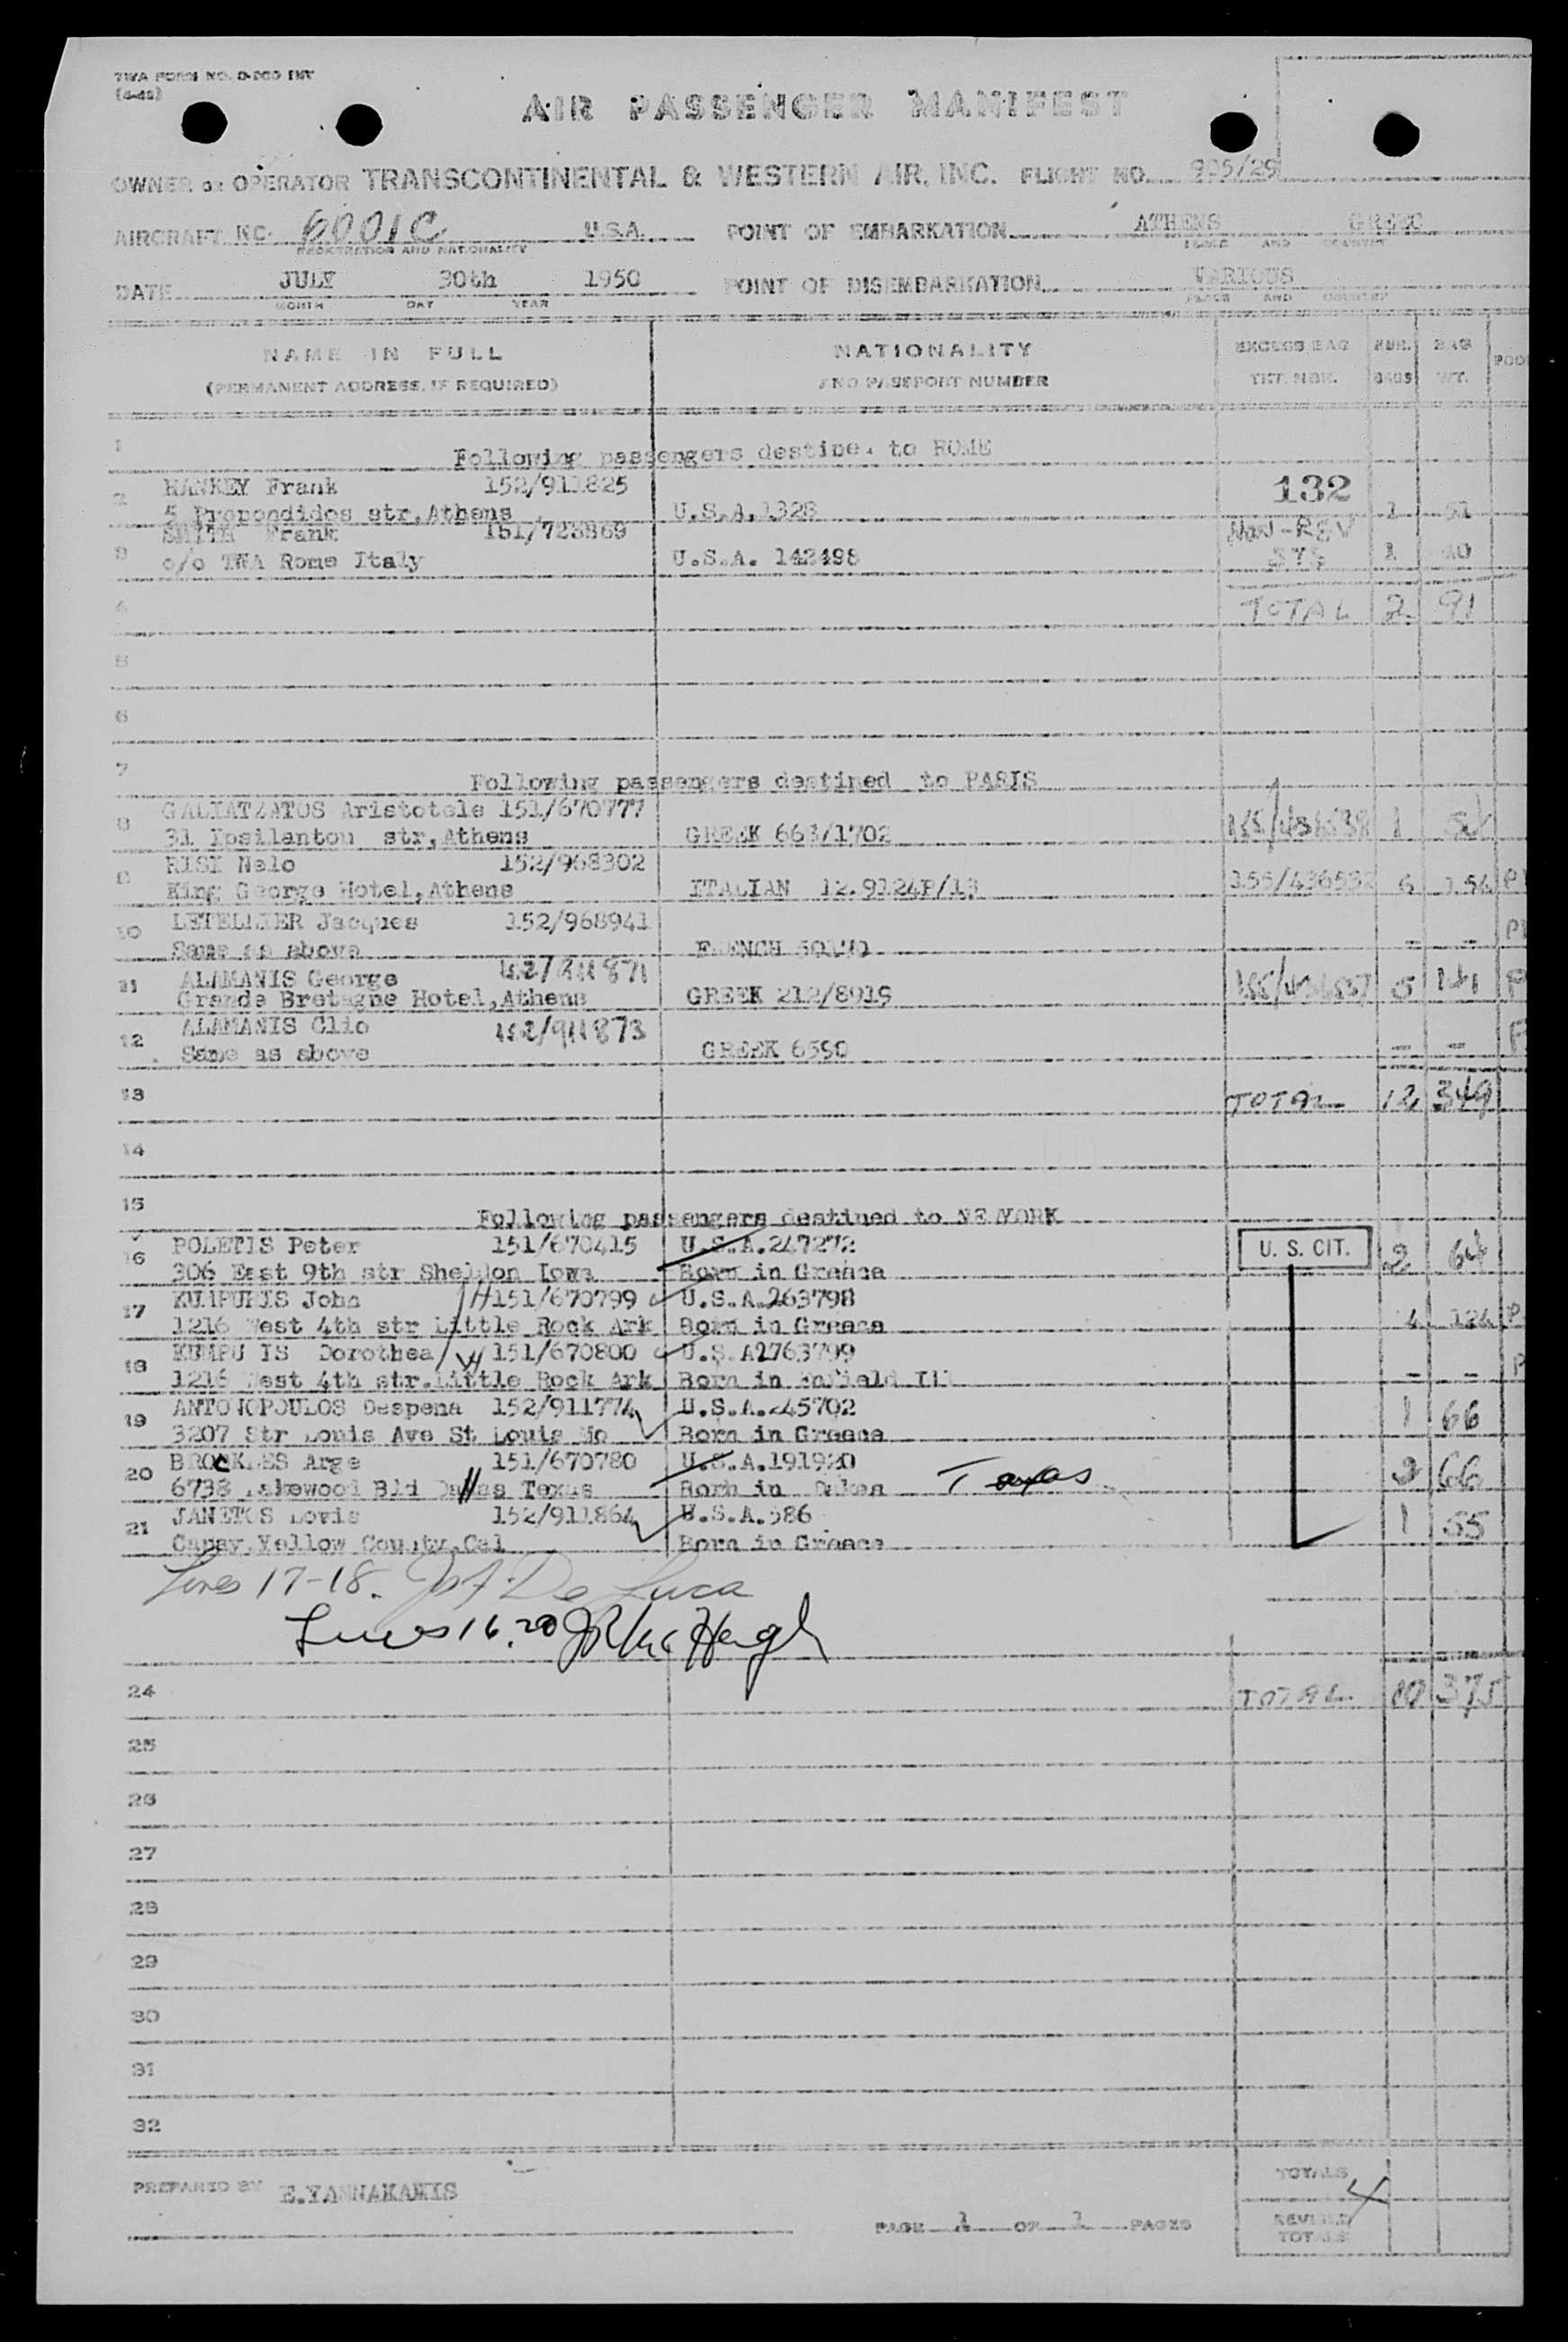 TWA FORM NO. 0-200 INT
(4-48)
AIR PASSENGER MANIFEST
OWNER OR OPERATOR TRANSCONTINENTAL & WESTERN AIR, INC. FLIGHT NO. 905/29
AIRCRAFT NC 6001C U.S.A. POINT OF EMBARKATION ATHENS GREEC
REGISTRATION AND NATIONALITY PLACE AND COUNTRY
DATE JULY 30th 1950 POINT OF DISEMBARKATION VARIOUS
MONTH DAY YEAR PLACE AND COUNTRY
NAME IN FULL NATIONALITY EXCESS BAG NUM. BAG
(PERMANENT ADDRESS, IF REQUIRED) AND PASSPORT NUMBER TKT. NBR. BAGS WT. FOOD
1 Following passengers destine. to ROME
2 HANKEY Frank 152/911825 132
5 Propondidos str,Athens U.S.A.1328 1 51
3 SMITH Frank 151/723869 NON-REV
c/o TWA Rome Italy U.S.A. 142498 1 40
4 TOTAL 2 91
5
6
7 Following passengers destined to PARIS
8 GALIATZATOS Aristotele 151/670777
31 Ipsilantou str,Athens GREEK 663/1702 1
9 RISI Nelo 152/968302
King George Hotel,Athens ITALIAN 12.9124P/13 155/436552 6 154
10 LETELLIER Jacques 152/968941
Same as above FRENCH - -
11 ALAMANIS George
Grande Bretagne Hotel,Athens GREEK 212/8919 5 141 P
12 ALAMANIS Clio 152/911873
Same as above GREEK 6590 - -
13 TOTAL 12 349
14
15 Following passengers destined to NEWYORK
16 POLETIS Peter 151/670415 U.S.A.247272 U. S. CIT. 2 64
306 East 9th str Sheldon Iowa Born in Greece
17 KUMPURIS John 151/670799 U.S.A.263798
1216 West 4th str Little Rock Ark Born in Greece 4 124 P
18 KUMPU IS Dorothea 151/670800 U.S.A2763799
1216 West 4th str.Little Rock Ark Born in Enfield Ill - - P
19 ANTONOPOULOS Despena 152/911774 U.S.A.245702 1 66
3207 Str Louis Ave St Louis Mo Born in Greece
20 BROCKLES Arge 151/670780 U.S.A.191920 2 66
6738 Lakewood Bld Dallas Texas Born in Texas
21 JANETOS Lovis 152/911864 U.S.A.586 1 55
Capay,Yellow County,Cal Born in Greece
Lines 17-18. Jos A. De Luca
Lines 16.20 JR McHugh
24 TOTAL 10 375
25
26
27
28
29
30
31
32
PREPARED BY E.YANNAKAKIS TOTALS
PAGE 1 OF 1 PAGES REVISED
TOTALS